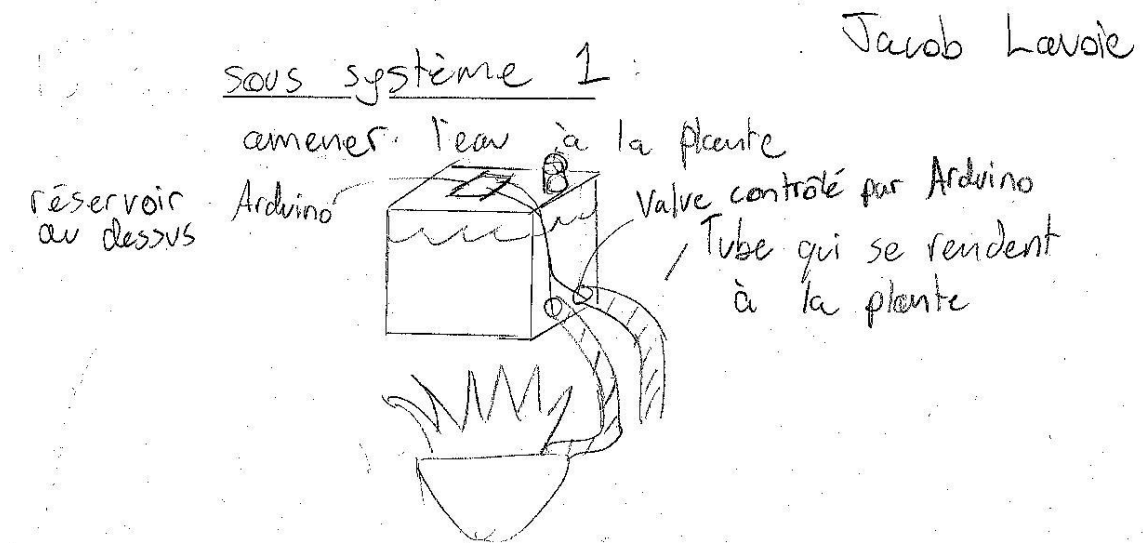 Jacob Lavoie
sous système 1 :
amener l'eau à la plante
réservoir
au dessus
Arduino
Valve contrôlé par Arduino
Tube qui se rendent
à la plante